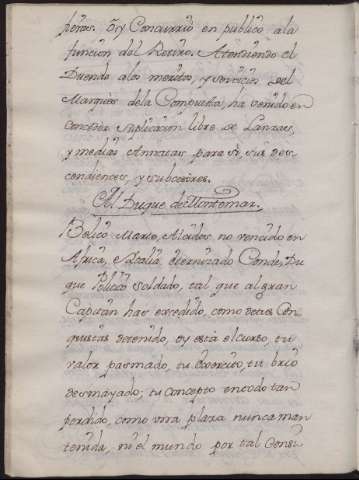 peños. oy Concurrió en publico ala
funcion del Retiro. Atendiendo el
Duende alos meritos, y servicios del
Marques dela Compuesta, ha venido en
conceder suplicacion libre de Lanzas,
y medias Annatas para si, sus des
cendientes, y subcesores.
Al Duque de Montemar.
Belico Marte, Alcides, no vencido en
Africa, è Italia eternizado Conde, Du
que Politico soldado, tal que al gran
Capitan has excedido, como de tus Con
quistas detenido, oy està el curso, tu
valor pasmado, tu Exercito, tu brio
desmayado; tu concepto en todo tan
perdido, como una plaza nunca man
tenida, ni el mundo por tal Consi